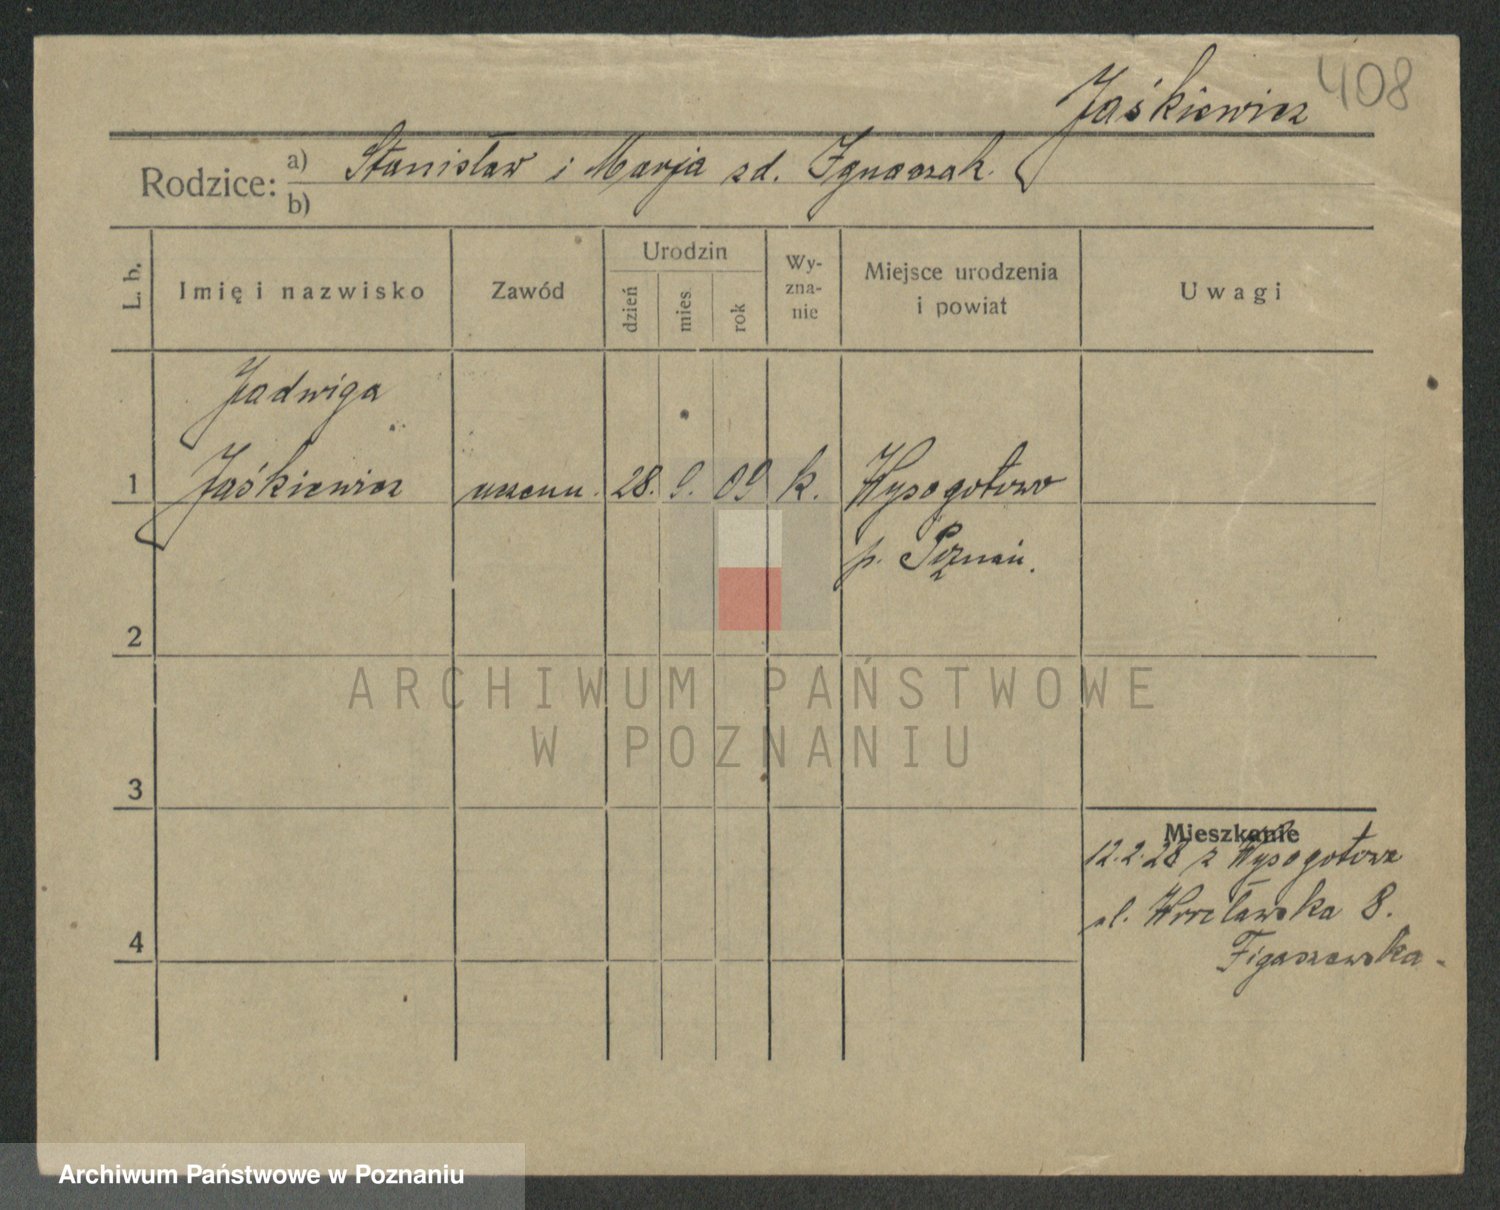 408
Jaśkiewicz
Rodzice: a) Stanisław i Marja zd. Ignaczak
b)
L. b. Imię i nazwisko Zawód Urodzin dzień mies. rok Wy-zna-nie Miejsce urodzenia i powiat Uwagi
Jadwiga
1 Jaśkiewicz uczenn. 28. 9. 09 k. Wysogotowo
p. Poznań.
2
ARCHIWUM PAŃSTWOWE
W POZNANIU
3
Mieszkanie
12.2.28 z Wysogotowa
ul. Wrocławska 8.
4
Figaszewska
Archiwum Państwowe w Poznaniu